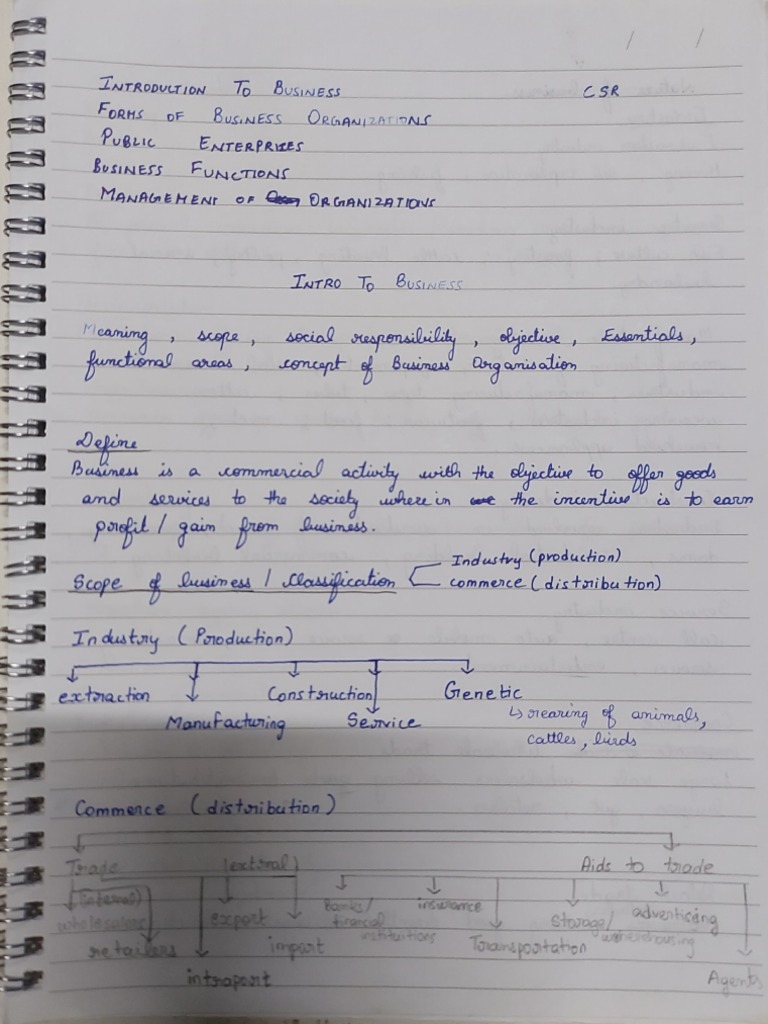 INTRODUCTION TO BUSINESS CSR
FORMS OF BUSINESS ORGANIZATIONS
PUBLIC ENTERPRIZES
BUSINESS FUNCTIONS
MANAGEMENT OF ORGANIZATIONS
INTRO TO BUSINESS
Meaning, scope, social responsibility, objective, Essentials,
functional areas, concept of Business Organisation
Define
Business is a commercial activity with the objective to offer goods
and services to the society where in the incentive is to earn
profit / gain from business.
Scope of business / classification
Industry (production)
commerce (distribution)
Industry (Production)
extraction Construction Genetic
Manufacturing Service
↳ rearing of animals,
cattles, birds
Commerce (distribution)
Trade (extrnal) Aids to trade
(internal)
wholesalers export Banks/ insurance Storage/ advertising
financial warehousing
instituitions
retailers import Transportation
intraport Agents